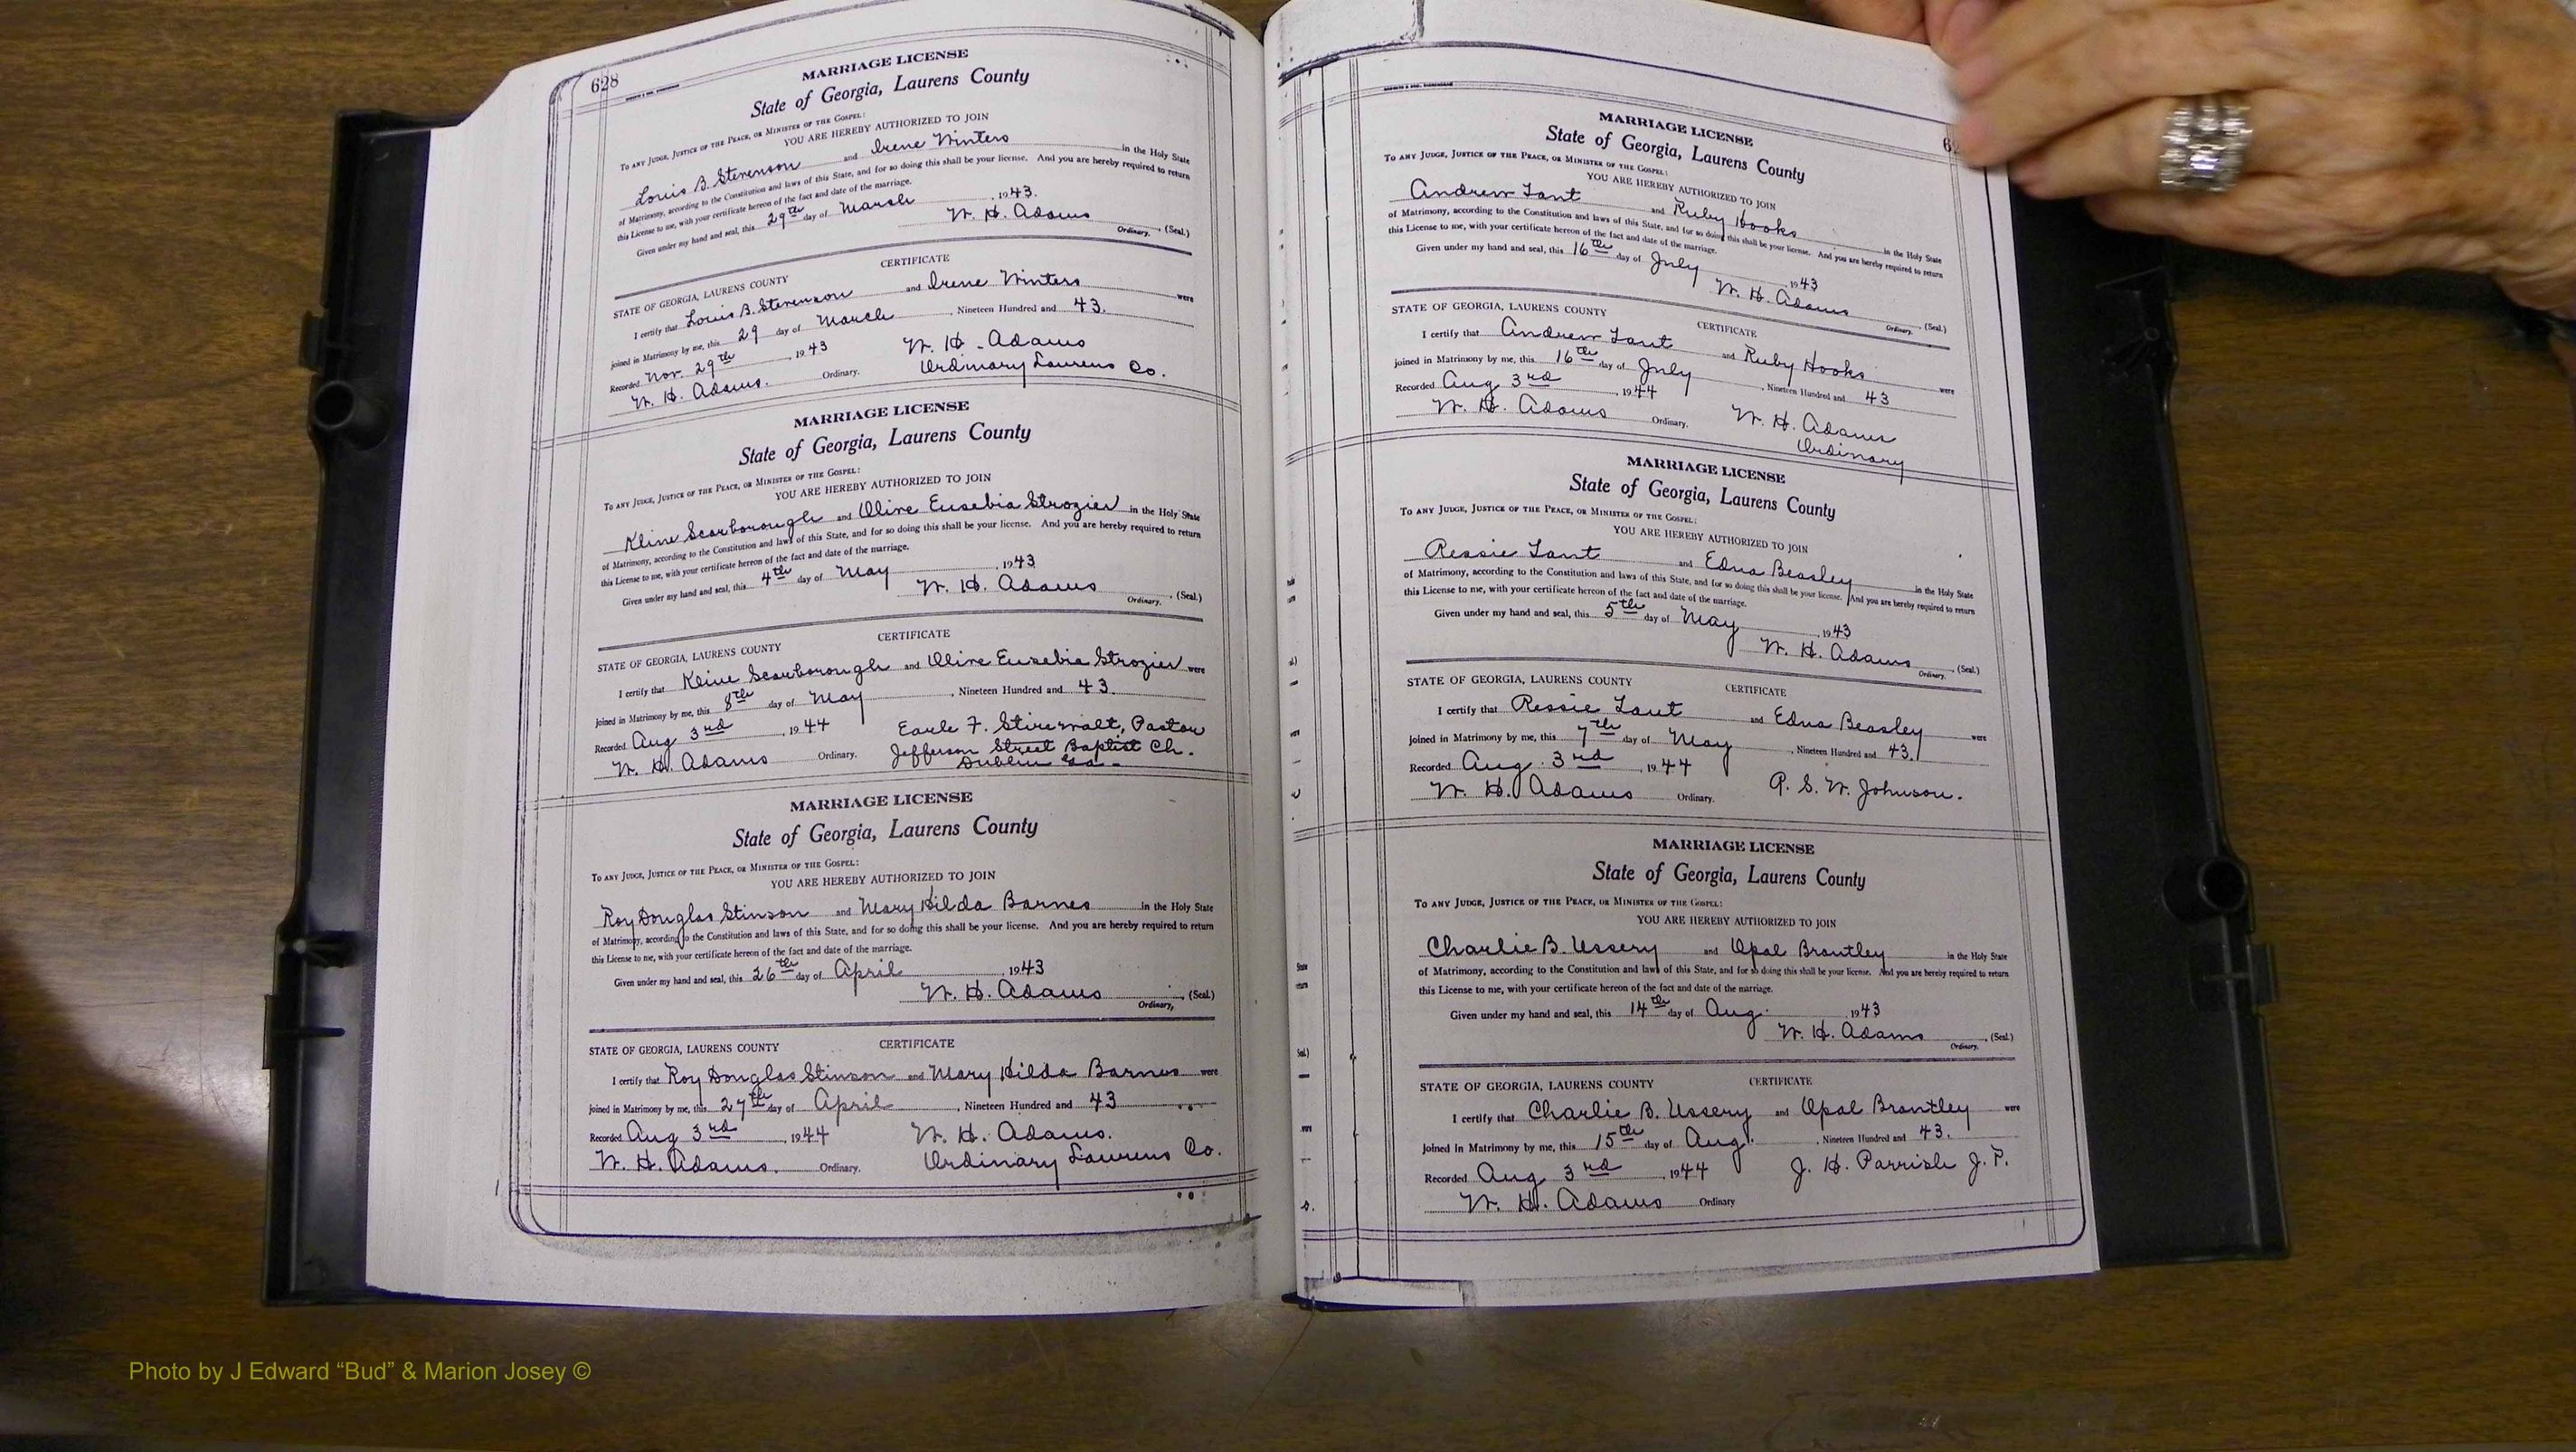 628
MARRIAGE LICENSE
State of Georgia, Laurens County
To any Judge, Justice of the Peace, or Minister of the Gospel:
YOU ARE HEREBY AUTHORIZED TO JOIN
Louis B. Stevenson and Irene Winters in the Holy State
of Matrimony, according to the Constitution and laws of this State, and for so doing this shall be your license. And you are hereby required to return
this License to me, with your certificate hereon of the fact and date of the marriage.
Given under my hand and seal, this 29th day of March, 1943.
W. H. Adams (Seal.)
Ordinary.
CERTIFICATE
STATE OF GEORGIA, LAURENS COUNTY
I certify that Louis B. Stevenson and Irene Winters were
joined in Matrimony by me, this 29 day of March, Nineteen Hundred and 43.
Recorded Nov. 29th, 1943 W. H. Adams
W. H. Adams. Ordinary. Ordinary Laurens Co.
MARRIAGE LICENSE
State of Georgia, Laurens County
To any Judge, Justice of the Peace, or Minister of the Gospel:
YOU ARE HEREBY AUTHORIZED TO JOIN
Kline Scarborough and Olive Eusebia Strozier in the Holy State
of Matrimony, according to the Constitution and laws of this State, and for so doing this shall be your license. And you are hereby required to return
this License to me, with your certificate hereon of the fact and date of the marriage.
Given under my hand and seal, this 4th day of May, 1943
W. H. Adams (Seal.)
Ordinary.
CERTIFICATE
STATE OF GEORGIA, LAURENS COUNTY
I certify that Kline Scarborough and Olive Eusebia Strozier were
joined in Matrimony by me, this 8th day of May, Nineteen Hundred and 43.
Recorded Aug 3rd, 1944 Earle F. Stirewalt, Pastor
W. H. Adams Ordinary. Jefferson Street Baptist Ch.
Dublin Ga.
MARRIAGE LICENSE
State of Georgia, Laurens County
To any Judge, Justice of the Peace, or Minister of the Gospel:
YOU ARE HEREBY AUTHORIZED TO JOIN
Roy Douglas Stinson and Mary Hilda Barnes in the Holy State
of Matrimony, according to the Constitution and laws of this State, and for so doing this shall be your license. And you are hereby required to return
this License to me, with your certificate hereon of the fact and date of the marriage.
Given under my hand and seal, this 26th day of April, 1943
W. H. Adams (Seal.)
Ordinary,
STATE OF GEORGIA, LAURENS COUNTY CERTIFICATE
I certify that Roy Douglas Stinson and Mary Hilda Barnes were
joined in Matrimony by me, this 27th day of April, Nineteen Hundred and 43
Recorded Aug 3rd, 1944 W. H. Adams.
W. H. Adams. Ordinary. Ordinary Laurens Co.
MARRIAGE LICENSE
State of Georgia, Laurens County
To any Judge, Justice of the Peace, or Minister of the Gospel:
YOU ARE HEREBY AUTHORIZED TO JOIN
Andrew Tant and Ruby Hooks in the Holy State
of Matrimony, according to the Constitution and laws of this State, and for so doing this shall be your license. And you are hereby required to return
this License to me, with your certificate hereon of the fact and date of the marriage.
Given under my hand and seal, this 16th day of July, 1943
W. H. Adams (Seal.)
Ordinary.
STATE OF GEORGIA, LAURENS COUNTY CERTIFICATE
I certify that Andrew Tant and Ruby Hooks were
joined in Matrimony by me, this 16th day of July, Nineteen Hundred and 43
Recorded Aug 3rd, 1944 W. H. Adams
W. H. Adams Ordinary. Ordinary
MARRIAGE LICENSE
State of Georgia, Laurens County
To any Judge, Justice of the Peace, or Minister of the Gospel:
YOU ARE HEREBY AUTHORIZED TO JOIN
Ressie Tant and Edna Beasley in the Holy State
of Matrimony, according to the Constitution and laws of this State, and for so doing this shall be your license. And you are hereby required to return
this License to me, with your certificate hereon of the fact and date of the marriage.
Given under my hand and seal, this 5th day of May, 1943
W. H. Adams (Seal.)
Ordinary.
STATE OF GEORGIA, LAURENS COUNTY CERTIFICATE
I certify that Ressie Tant and Edna Beasley were
joined in Matrimony by me, this 7th day of May, Nineteen Hundred and 43.
Recorded Aug. 3rd, 1944
W. H. Adams Ordinary. P. S. W. Johnson.
MARRIAGE LICENSE
State of Georgia, Laurens County
To any Judge, Justice of the Peace, or Minister of the Gospel:
YOU ARE HEREBY AUTHORIZED TO JOIN
Charlie B. Ussery and Opal Brantley in the Holy State
of Matrimony, according to the Constitution and laws of this State, and for so doing this shall be your license. And you are hereby required to return
this License to me, with your certificate hereon of the fact and date of the marriage.
Given under my hand and seal, this 14th day of Aug. 1943
W. H. Adams (Seal.)
Ordinary.
STATE OF GEORGIA, LAURENS COUNTY CERTIFICATE
I certify that Charlie B. Ussery and Opal Brantley were
Joined in Matrimony by me, this 15th day of Aug., Nineteen Hundred and 43.
Recorded Aug 3rd, 1944 J. H. Parrish J. P.
W. H. Adams Ordinary
Photo by J Edward “Bud” & Marion Josey ©